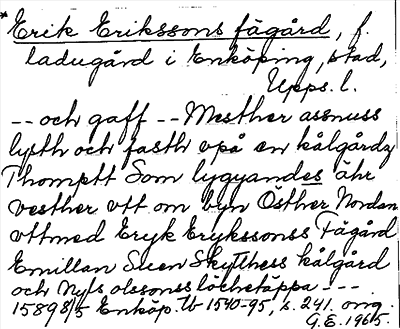 * Erik Erikssons fägård, f.
ladugård i Enköping, stad,
Upps. l.
-- och gaff -- Mesther assnuss
lysth och fasth vpå en kålgårdz
Thomptt Som lygyandes ähr
vesther vtt om byn Östher Nordan
vttmed Eryk Erykssonss Fägård
Emillan Suen Skytthess kålgård
och Nyls olssonss löchetäppa ---
1589 8/5 Enköp. Tb 1540-95, s. 241. omg.
G.E. 1965.